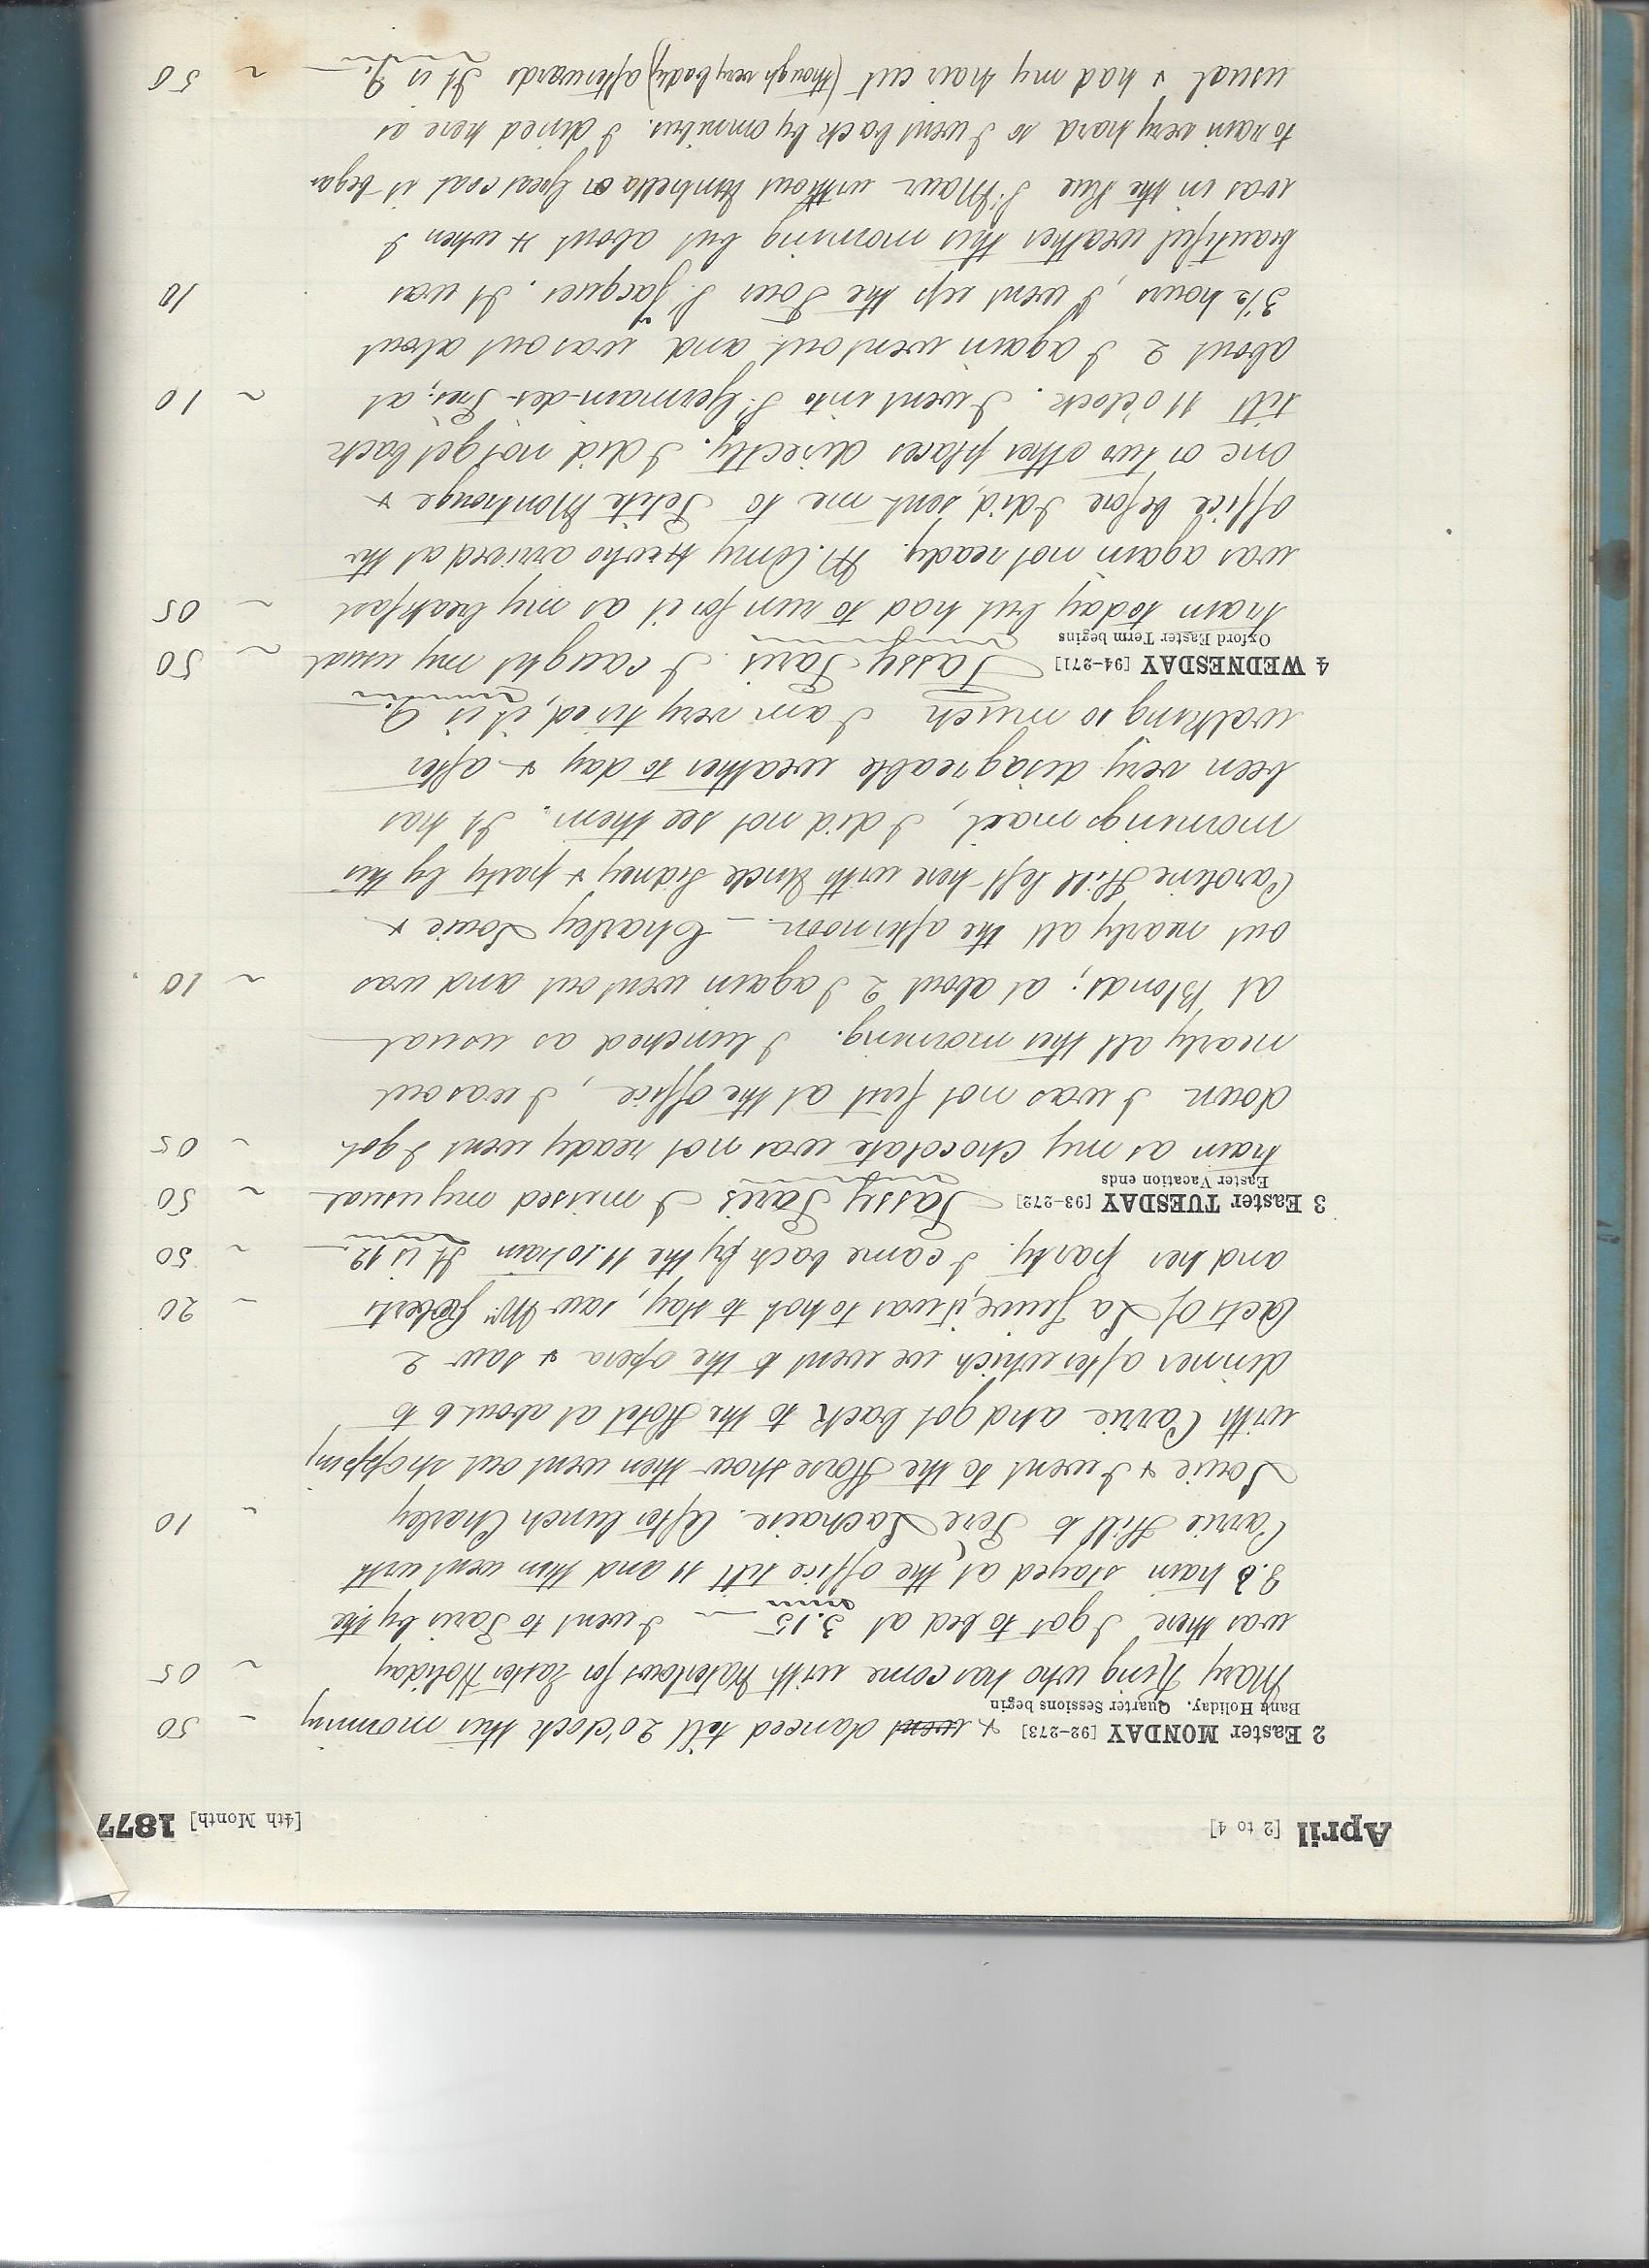 April [2 to 4] [4th Month] 1877
2 Easter MONDAY [92-273] & went danced till 2 o'clock this morning – 50
Bank Holiday. Quarter Sessions begin
Mary King who has come with Waterlows for Easter Holiday ~ 05
was there I got to bed at 3.15 – I went to Paris by the
train stayed at the office till 11 and then went with
Carrie Hill to Pere Lachaise. After lunch Charley ~ 10
Louie & I went to the Horse show then went out shopping
with Carrie and got back to the Hotel at about 6 to
dinner after which we went to the opera & saw 2
Acts of La Juive, it was to hot to stay, saw Mrs Roberts – 20
and her party. I came back by the 11.10 train It is 12 – ~ 50
3 Easter TUESDAY [93-272] Passy Paris I missed my usual ~ 50
Easter Vacation ends
train as my chocolate was not ready went I got ~ 05
down I was not first at the office, I was out
nearly all this morning. I lunched as usual
at Blonds; at about 2 I again went out and was ~ 10
out nearly all the afternoon – Charley Louie &
Caroline Hill left here with Uncle Sidney & party by this
mornings mail, I did not see them. It has
been very disagreeable weather to day & after
walking so much I am very tired, it is 9.
4 WEDNESDAY [94-271] Passy Paris I caught my usual ~ 50
Oxford Easter Term begins
train today but had to run for it as my breakfast ~ 05
was again not ready. M. who arrived at the
office before I did, sent me to Petite Montrouge &
one or two other places directly. I did not get back
till 11 o'clock. I went into St Germain-des-Prés; at ~ 10
about 2 I again went out and was out about
3½ hours, I went up the Tour St Jacques. It was 10
beautiful weather this morning but about 4 when I
was in the Rue St Maur without Umbrella or Great coat it began
to rain very hard so I went back by omnibus. I dined here as
usual & had my hair cut (though very badly) afterwards It is 9. – ~ 50